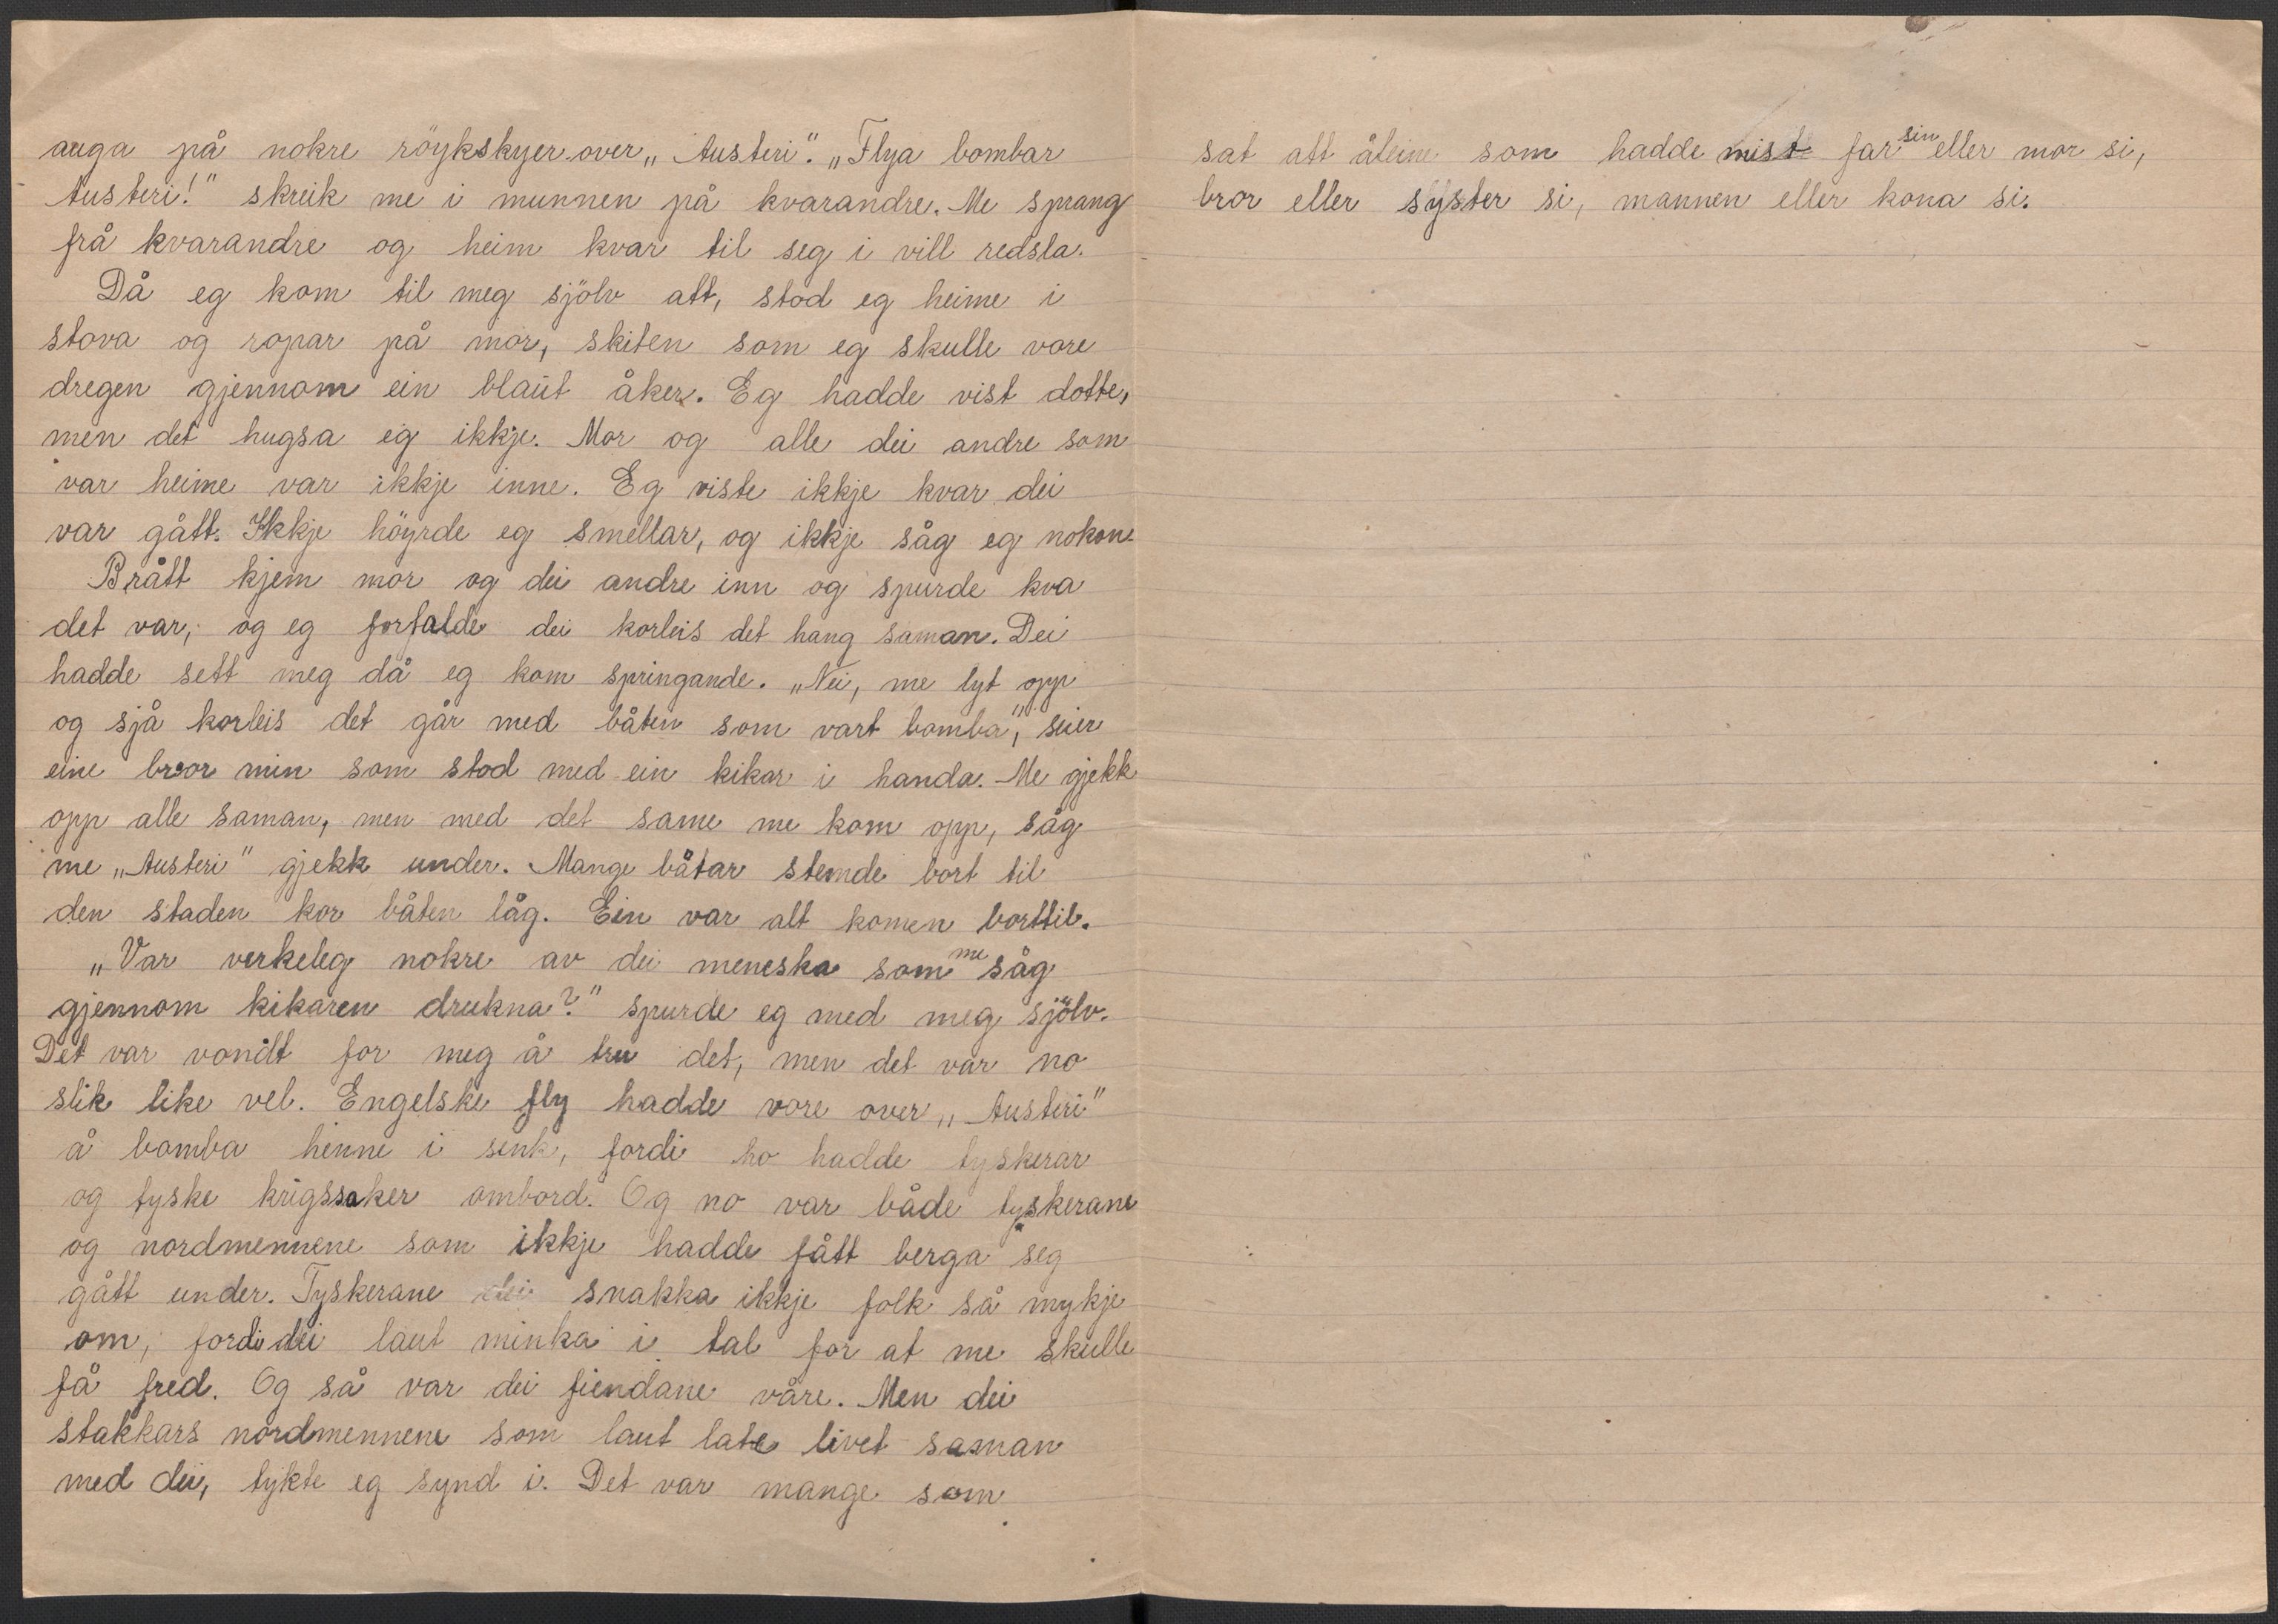 auga på nokre röykskyer over „Austeri". „Flya bombar
Austeri!" skreik me i munnen på kvarandre. Me sprang
frå kvarandre og heim kvar til seg i vill redsla.
Då eg kom til meg sjölv att, stod eg heime i
stova og ropar på mor, skiten som eg skulle vore
dregen gjennom ein blaut åker. Eg hadde vist dotte,
men det hugsa eg ikkje. Mor og alle dei andre som
var heime var ikkje inne. Eg viste ikkje kvar dei
var gått. Ikkje höyrde eg smellar, og ikkje såg eg nokon
Brått kjem mor og dei andre inn og spurde kva
det var, og eg fortalde dei korleis det hang saman. Dei
hadde sett meg då eg kom springande. „Nei, me lyt opp
og sjå korleis det går med båten som vart bomba", seier
eine broor min som stod med ein kikar i handa. Me gjekk
opp alle saman, men med det same me kom opp, såg
me „Austeri" gjekk under. Mange båtar stemde bort til
den staden kor båten låg. Ein var alt komen borttil.
„Var verkeleg nokre av dei meneska som me såg
gjennom kikaren drukna?" spurde eg med meg sjölv.
Det var vondt for meg å tru det, men det var no
slik like vel. Engelske fly hadde vore over „Austeri"
å bomba henne i senk, fordi ho hadde tyskerar
og tyske krigssaker ombord. Og no var både tyskerane
og nordmennene som ikkje hadde fått berga seg
gått under. Tyskerane dei snakka ikkje folk så mykje
om, fordi dei laut minka i tal for at me skulle
få fred. Og så var dei fiendane våre. Men dei
stakkars nordmennene som laut late livet saman
med dei, tykte eg synd i. Det var mange som
sat att åleine som hadde mist far sin eller mor si,
bror eller syster si, mannen eller kona si.